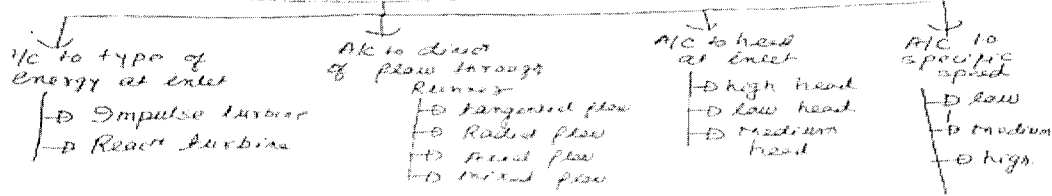 A/C to type of
energy at inlet
Impulse turbine
React turbine
A/C to direct
of flow through
Runner
tangential flow
Radial flow
Axial flow
mixed flow
A/C to head
at inlet
high head
low head
medium
head
A/C to
specific
speed
low
medium
high